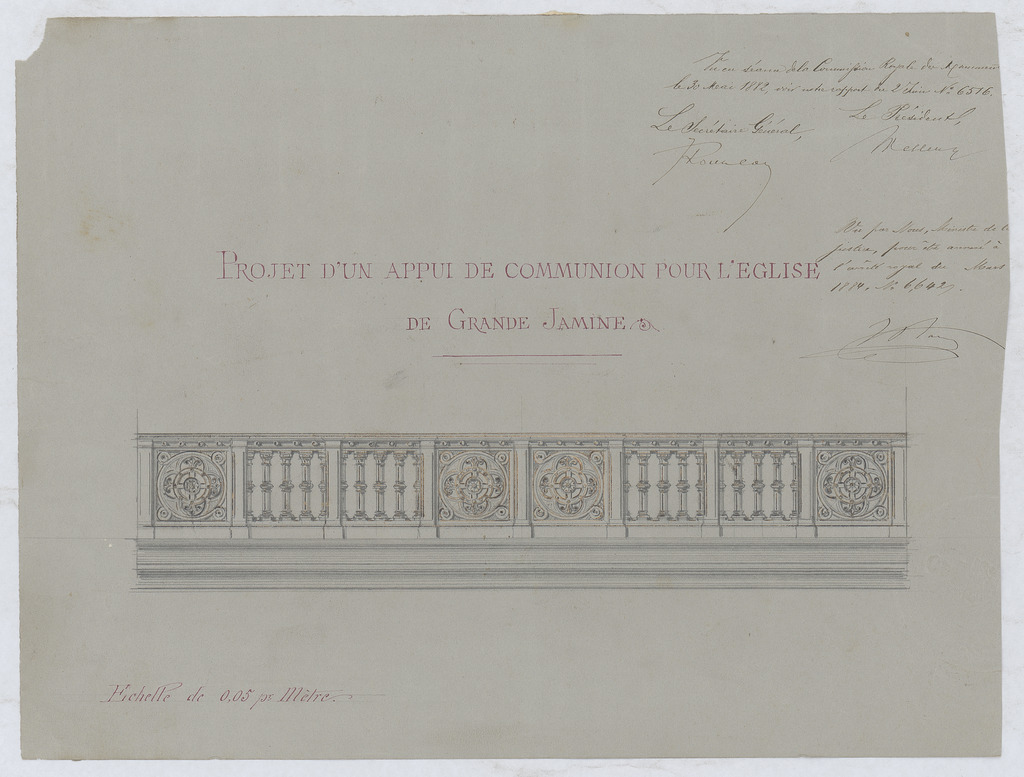 Vu en séance de la Commission Royale des Monuments
le 30 Mai 1882, voir notre rapport du 2 Juin N° 6516.
Le Président,
Le Secrétaire Général,
Vu par Nous, Ministre de la
justice, pour être annexé à
l'arrêté royal du Mars
1884. N°
PROJET D'UN APPUI DE COMMUNION POUR L'EGLISE
DE GRANDE JAMINE
Echelle de 0,05 pr Mètre.